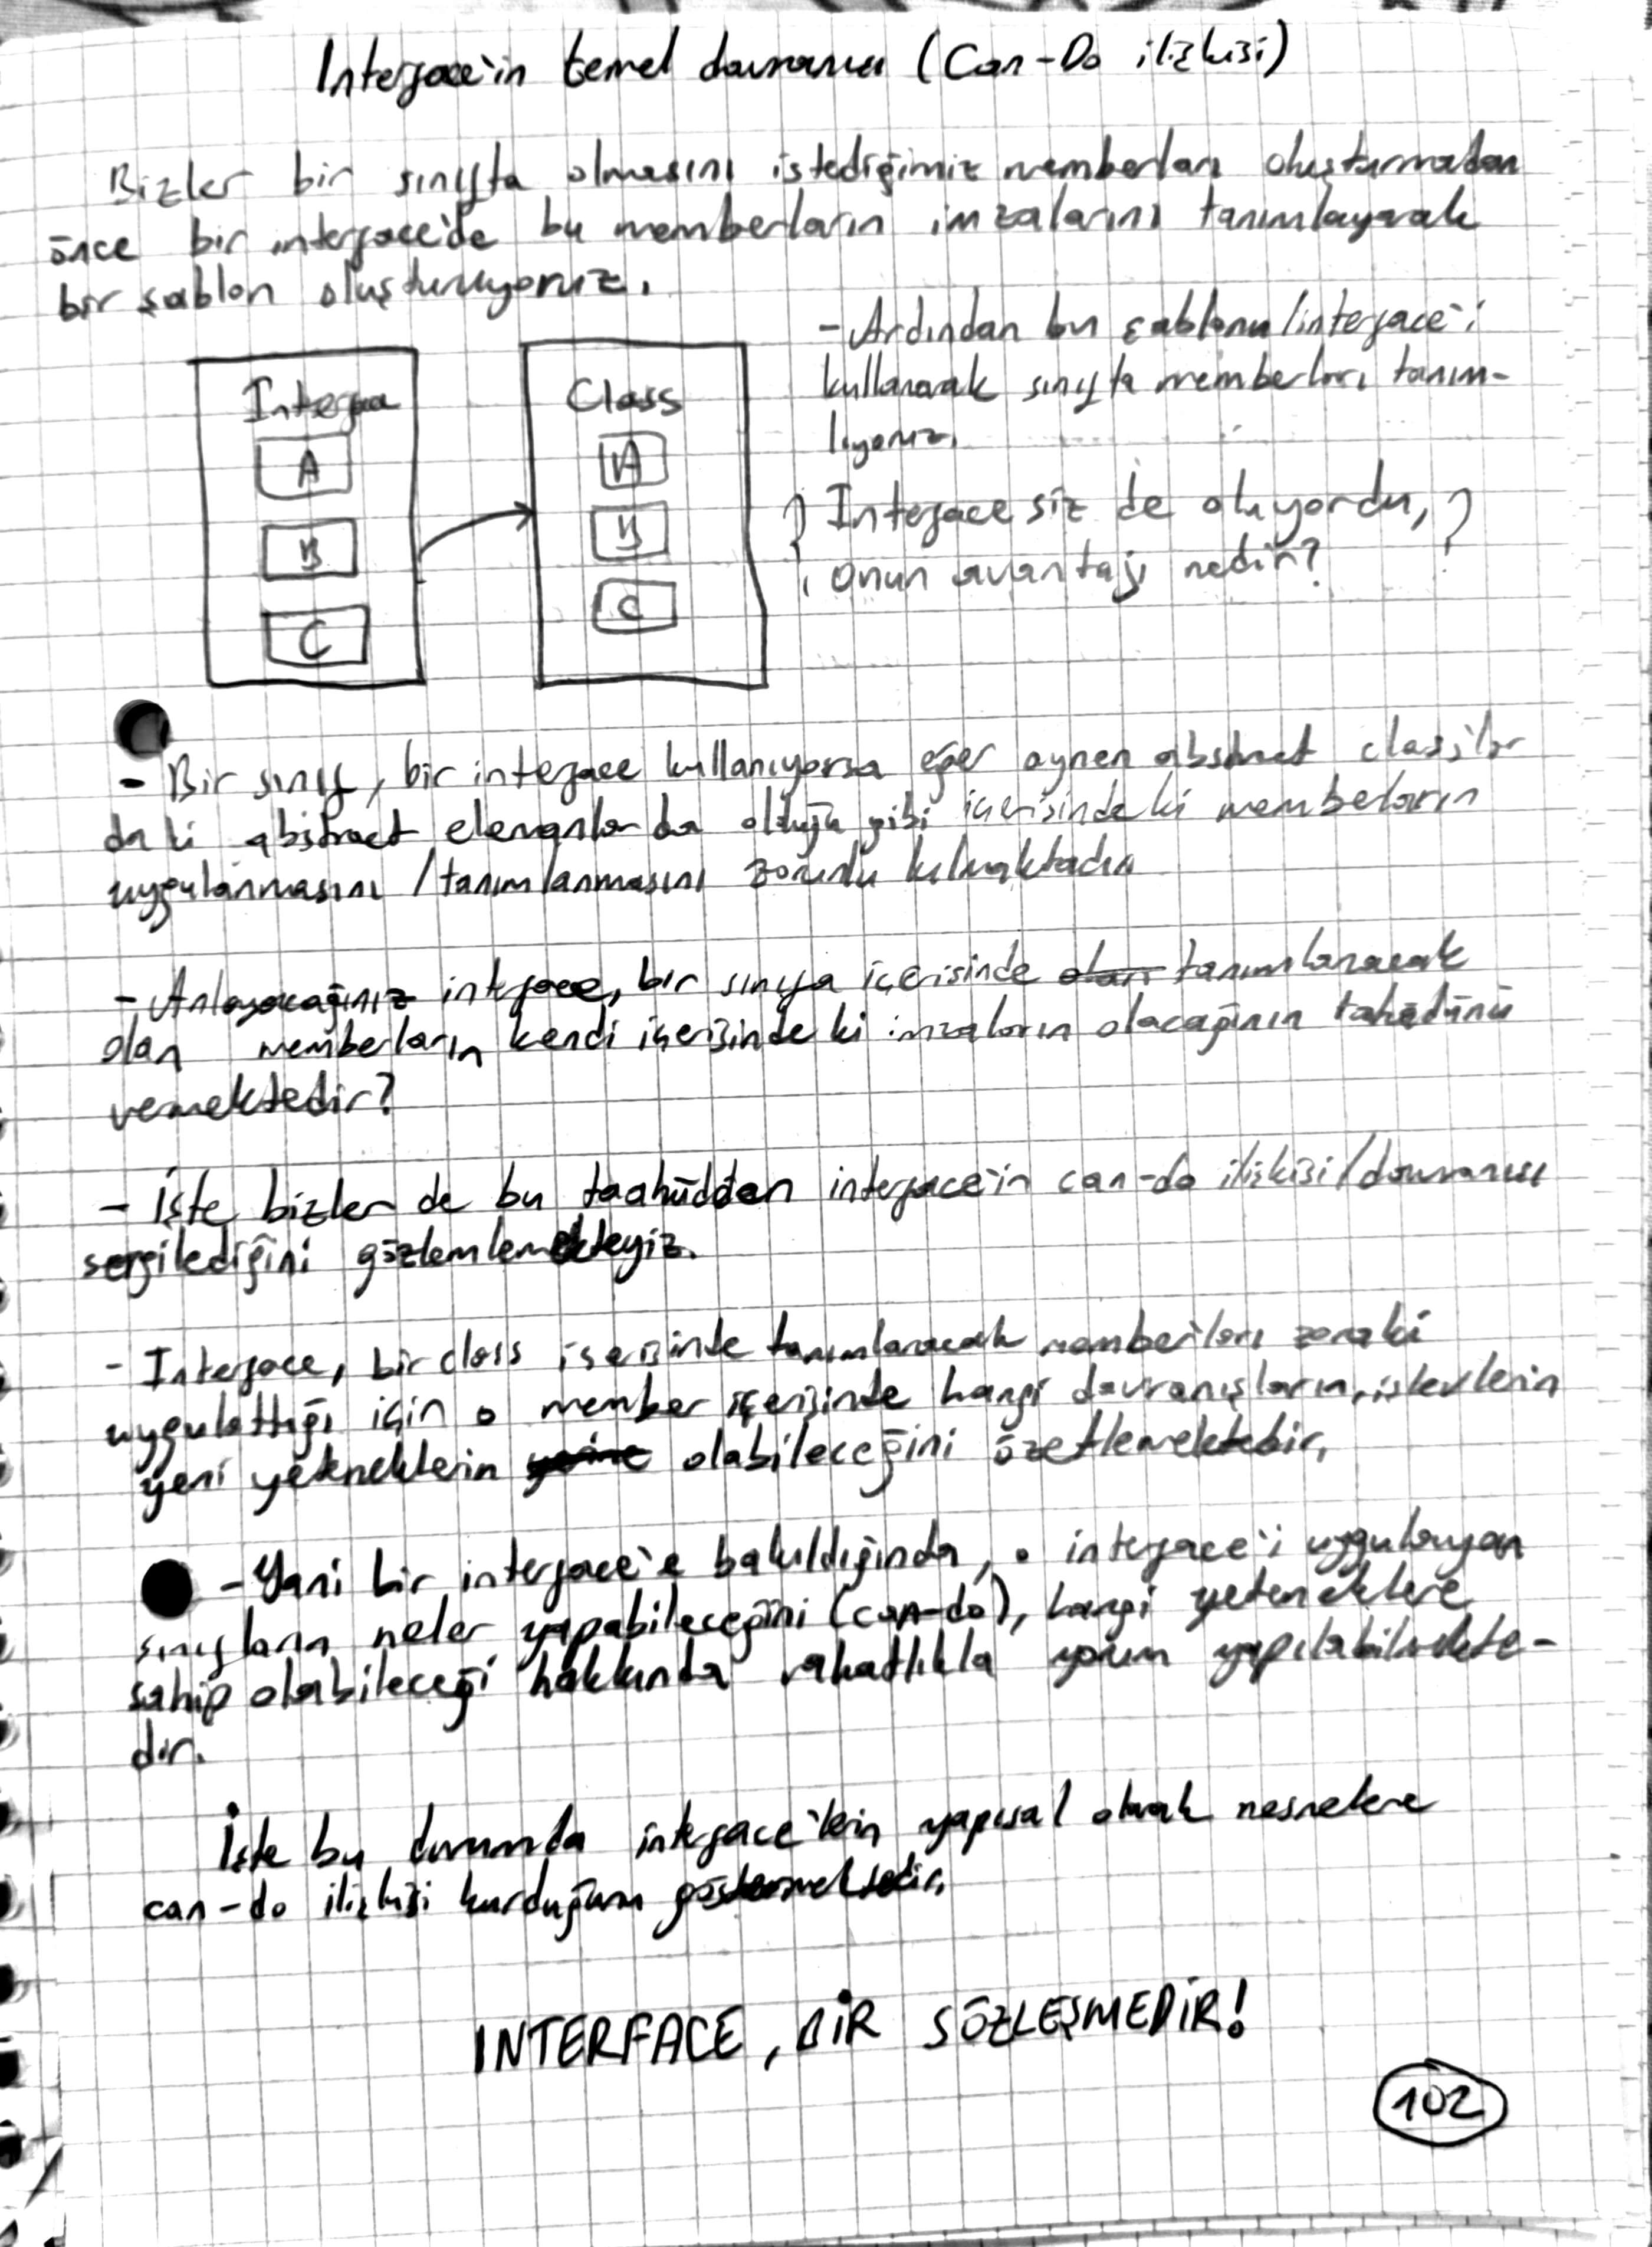 Interface'in temel davranışı (Can-Do ilişkisi)
Bizler bir sınıfta olmasını istediğimiz memberları oluşturmadan
önce bir interface'de bu memberların imzalarını tanımlayarak
bir şablon oluşturuyoruz.
- Ardından bu şablonu/interface'i
kullanarak sınıfta memberları tanım-
lıyoruz.
Interface
A
B
C
Class
A
B
C
Interface siz de oluyordu, ?
! Onun avantajı nedir?
- Bir sınıf, bir interface kullanıyorsa eğer aynen abstract class'lar
daki abstract elemanlar da olduğu gibi içerisindeki memberların
uygulanmasını/tanımlanmasını zorunlu kılmaktadır
- Anlayacağınız interface, bir sınıfa içerisinde tanımlanacak
olan memberların kendi içerisindeki imzaların olacağının tahedünü
vermektedir?
- İşte bizler de bu taahüdden interface'in can-do ilişkisi/davranışı
sergilediğini gözlemlemekteyiz.
- Interface, bir class içerisinde tanımlanacak member'ları zoraki
uygulattığı için o member içerisinde hangi davranışların, işlevlerin
yeni yeteneklerin olabileceğini özetlemektedir.
- Yani bir interface'e bakıldığında, o interface'i uygulayan
sınıfların neler yapabileceğini (can-do), hangi yeteneklere
sahip olabileceği hakkında rahatlıkla yorum yapılabilmekte-
dir.
İşte bu durumda interface'lerin yapısal olarak nesnelere
can-do ilişkisi kurduğunu göstermektedir.
INTERFACE, BİR SÖZLEŞMEDİR!
102